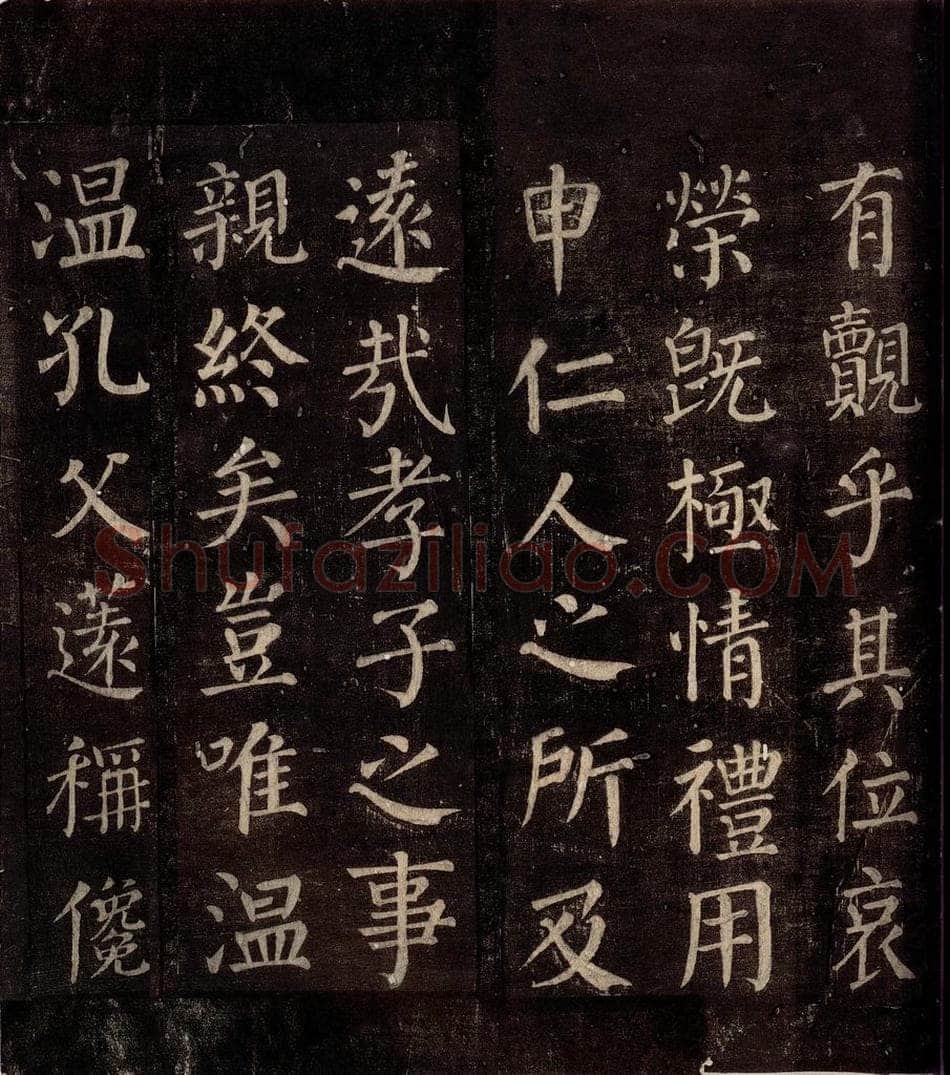 有覿乎其位哀
榮既極情禮用
申仁人之所及
遠哉孝子之事
親終矣豈唯温
温孔父遠稱儳
Shufaziliao.COM